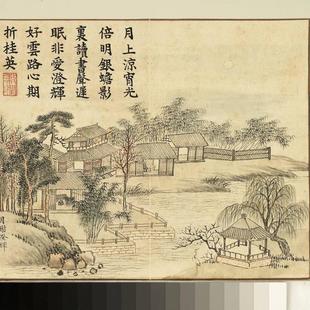 月上涼宵光
倍明銀蟾影
裏讀書聲遲
眠非愛澄輝
好雲路心期
折桂英